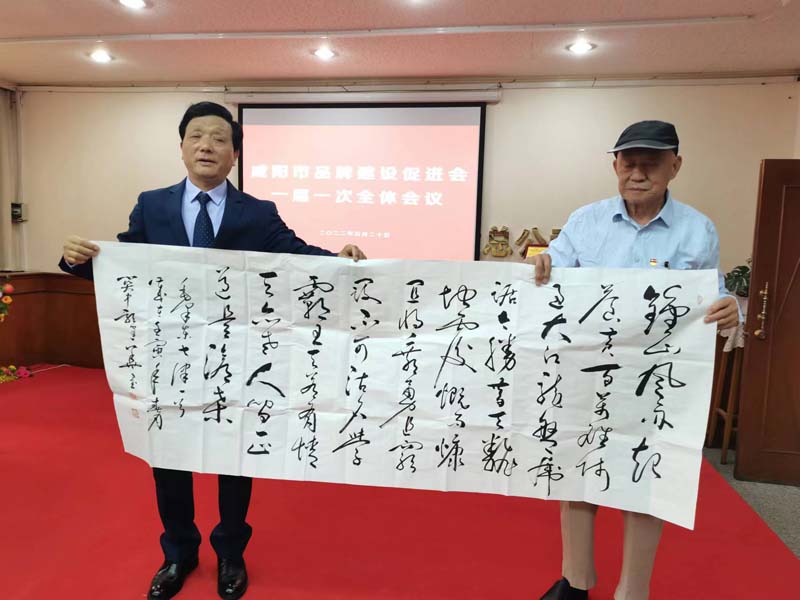 咸阳市品牌建设促进会
一届一次全体会议
二〇二二年五月二十日
鍾山风雨起
蒼黄百万雄师
过大江龍盤虎
踞今勝昔天翻
地覆慨而慷
宜将剩勇追窮
寇不可沽名學
霸王天若有情
天亦老人间正
道是滄桑
毛泽东七律一首